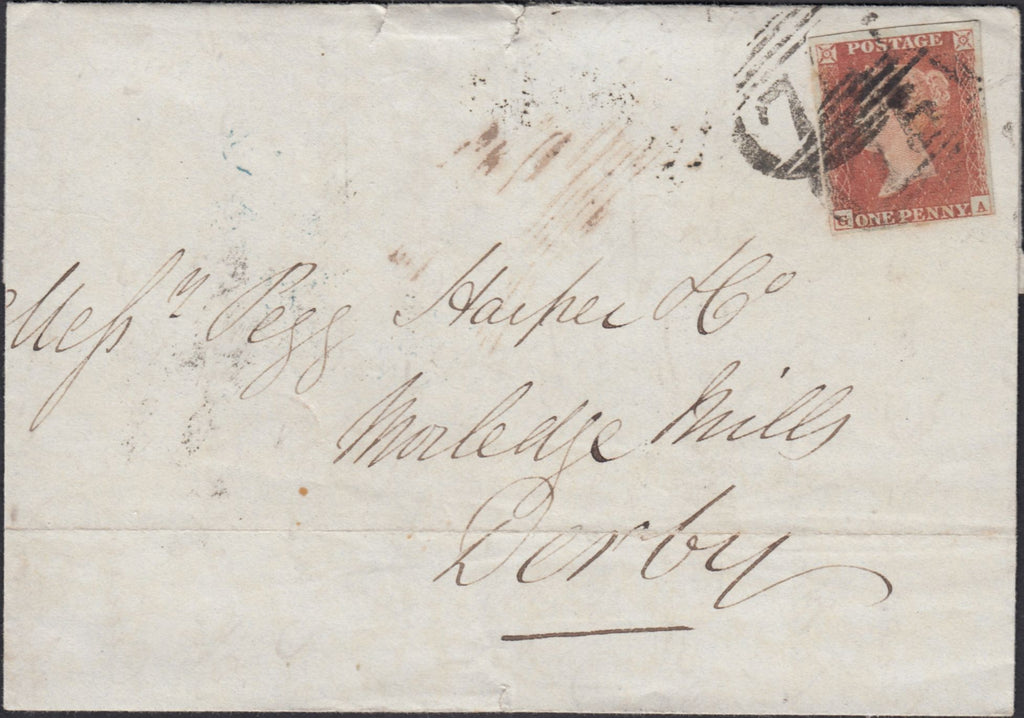 POSTAGE
7
G ONE PENNY A
Messrs Pegg Harper & Co
Morledge Mills
Derby